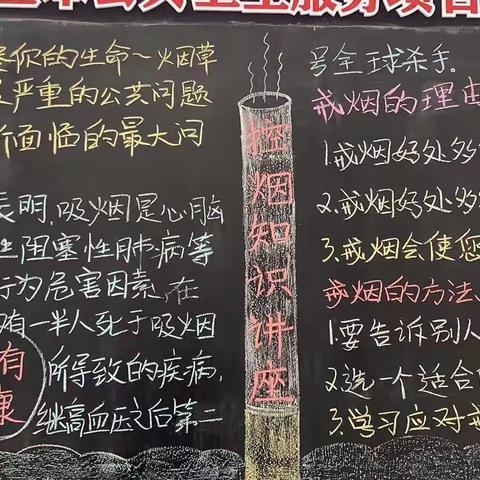 本公共卫生服务项目
你的生命~烟草
严重的公共问题
所面临的最大问
表明,吸烟是心脑
阻塞性肺病等
行为危害因素,在
有一半人死于吸烟
所导致的疾病,
继高血压之后第二
有
康
控烟知识讲座
号全球杀手.
戒烟的理由
1.戒烟好处多
2.戒烟好处多
3.戒烟会使您
戒烟的方法、
1.要告诉别人
2.选一个适合
3.学习应对戒